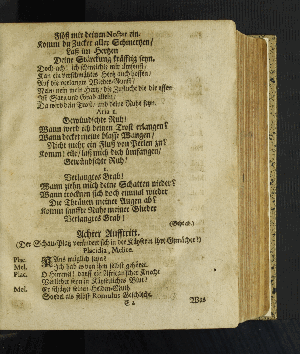 Flöst mir deinen Nectar ein.
Komm du Zucker aller Schmertzen/
Laß im Hertzen
Deine Stärckung kräfftig seyn.
Doch ach! ich schmeichle mir umsonst:
Kan ein verschmähtes Hertz auch hoffen/
Auf die verlangte
Nein nein mein Hertz/ die Zuflucht die dir offen
Ist Sarg und Grab allein;
Da werd dein Trost/ und deine Ruhe seyn.
Aria
Gewündschte Ruh!
Wann werd ich deinen Trost erlangen?
Wann decket meine blasse Wangen/
Nicht mehr ein Fluß von Perlen zu?
Komm! eile/ laß mich doch umfangen/
Gewündschte Ruh!
2.
Verlangtes Grab!
Wann ziehn mich deine Schatten nieder?
Wann trocknen sich doch einmal wieder
Die Thränen meiner Augen ab?
Komm sanffte Ruhe meiner Glieder
Verlangtes Grab!
(Geht ab.)
Achter Aufftritt.
(Der Schau-Platz verändert sich in der Käyserin ihre Gemächer)
Placidia,
Plac. Ists möglich
Mel. Ich hab es von ihm selbst gehöret.
Plac. O Himmel! daß ein Africanischer Knecht
Verliebet seyn in Käyserliches Blut?
Mel. Er schätzt seinen Helden-Muth
So edel als selbst Romulus Geschlecht.
Was